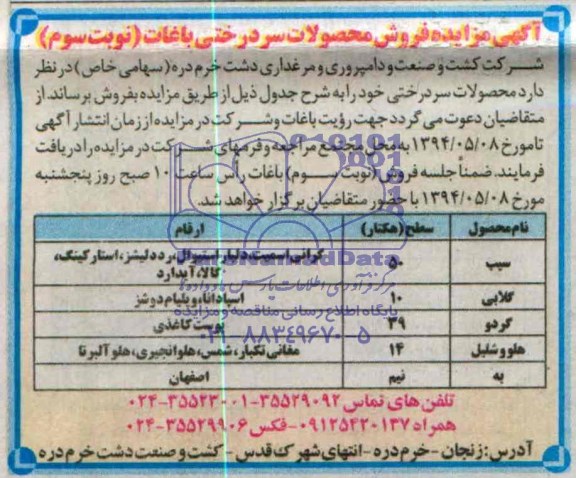 آگهی مزایده فروش محصولات سردرختی باغات (نوبت سوم)
شرکت کشت و صنعت و دامپروری و مرغداری دشت خرم دره (سهامی خاص) در نظر
دارد محصولات سردرختی خود را به شرح جدول ذیل از طریق مزایده بفروش برساند. از
متقاضیان دعوت می گردد جهت رؤیت باغات و شرکت در مزایده از زمان انتشار آگهی
تا مورخ ۱۳۹۴/۰۵/۰۸ به محل مجتمع مراجعه و فرمهای شرکت در مزایده را دریافت
فرمایند. ضمناً جلسه فروش (نوبت سوم) باغات رأس ساعت ۱۰ صبح روز پنجشنبه
مورخ ۱۳۹۴/۰۵/۰۸ با حضور متقاضیان برگزار خواهد شد.
نام محصول سطح (هکتار) ارقام
سیب ۵۰ گرانی اسمیت، دلبار استیوال، رد دلیشز، استارکینگ، گالا، آیدارد
گلابی ۱۰ اسپادانا، ویلیام دوشز
گردو ۳۹ پوست کاغذی
هلو و شلیل ۱۴ مغانی تکبار، شمس، هلو انجیری، هلو آلبرتا
به نیم اصفهان
تلفن های تماس ۳۵۵۲۹۰۹۲-۰۰۱-۳۵۵۲۳-۰۲۴
همراه ۰۹۱۲۵۴۲۰۱۳۷-فکس ۳۵۵۲۹۹۰۶-۰۲۴
آدرس: زنجان - خرم دره - انتهای شهرک قدس - کشت و صنعت دشت خرم دره
مرکز فرآوری اطلاعات پارس نماد داده ها
پایگاه اطلاع رسانی مناقصه و مزایده
۰۲۱-۸۸۳۴۹۶۷۰-۵